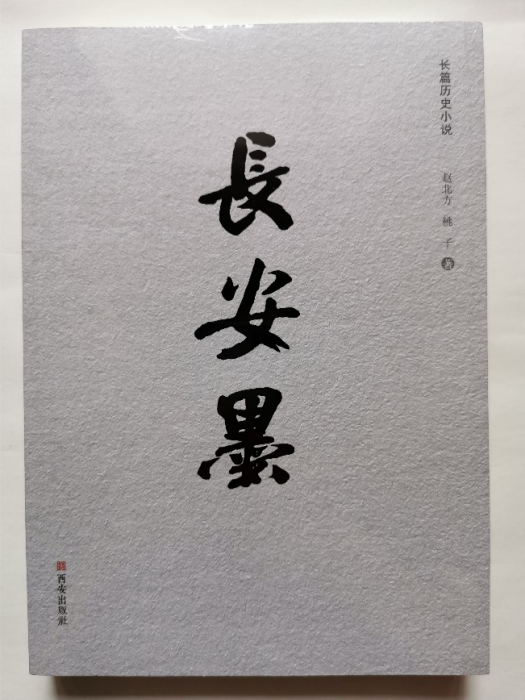 长篇历史小说
赵北方 桃子 著
長安墨
西安出版社